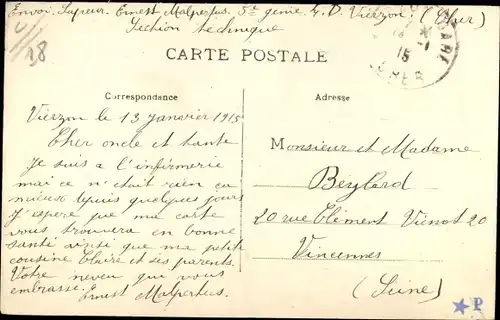 Envoi. Sapeur. Ernest Malperteis. 5e genie G. D Vierzon. (Cher)
Section technique
CARTE POSTALE
15
CHER
Correspondance
Vierzon le 13 janvier 1915
Cher oncle et tante
Je suis a l'infirmerie
mai ce n'était rien ça
mieux depuis quelques jours
J'espere que ma carte
vous trouvera en bonne
santé ainsi que ma petite
cousine Claire et ses parents.
Votre neveu qui vous
embrasse. Ernest Malperteis.
Adresse
Monsieur et Madame
Beylard
20 rue Clément Vienot 20
Vincennes
(Seine)
P